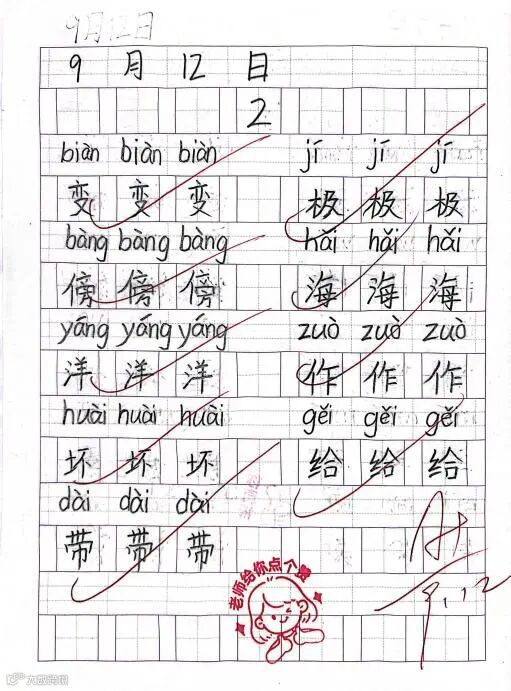 9月12日
9 月 12 日
2
biàn biàn biàn jí jí jí
变 变 变 极 极 极
bàng bàng bàng hǎi hǎi hǎi
傍 傍 傍 海 海 海
yáng yáng yáng zuò zuò zuò
洋 洋 洋 作 作 作
huài huài huài gěi gěi gěi
坏 坏 坏 给 给 给
dài dài dài
带 带 带
A+
9.12
老师给你点个赞